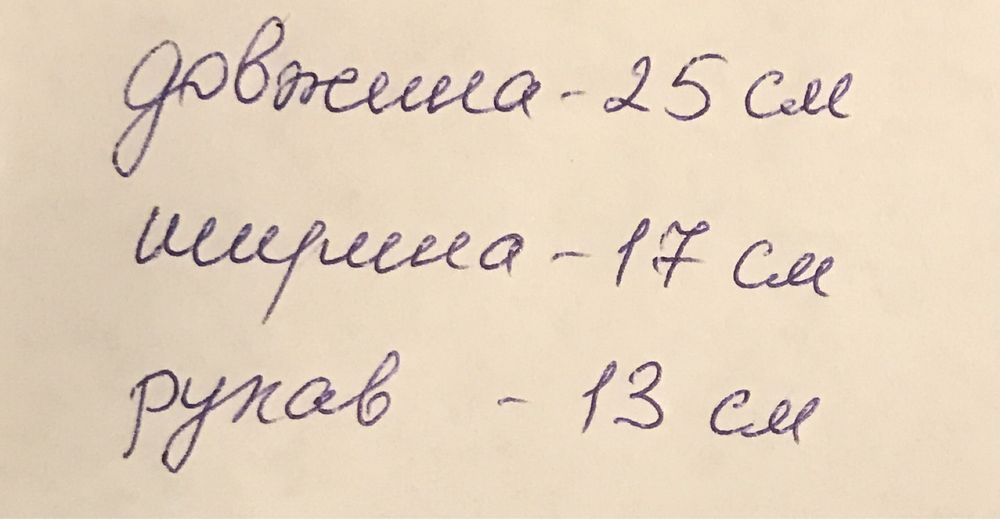 довжина - 25 см
ширина - 17 см
рукав - 13 см